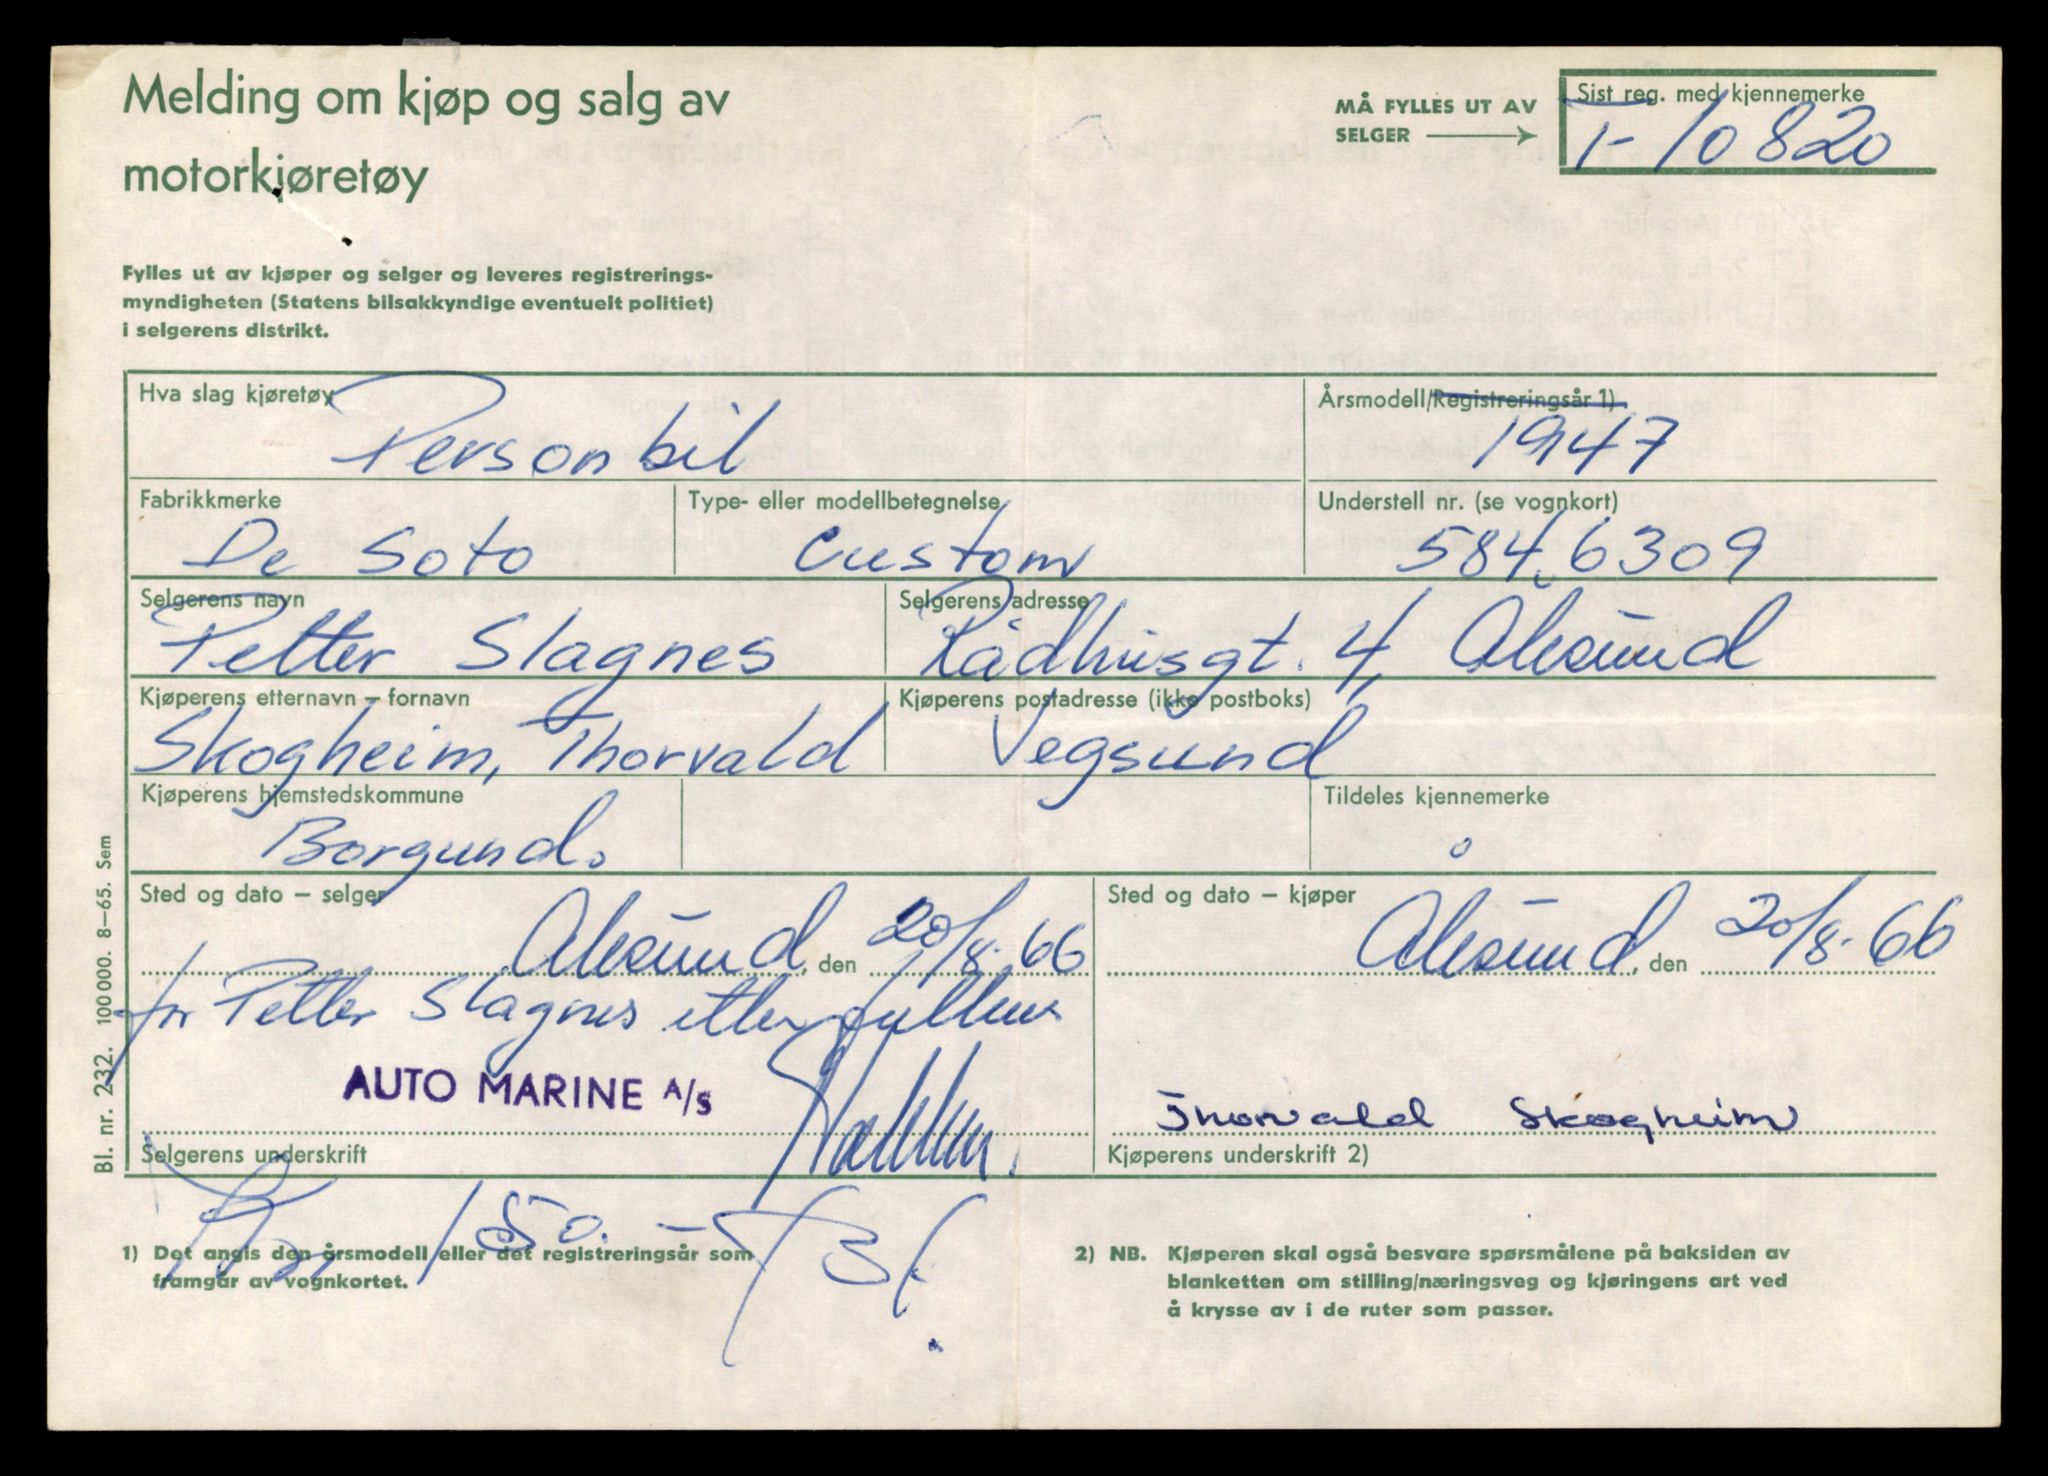 Melding om kjøp og salg av
motorkjøretøy
MÅ FYLLES UT AV
SELGER
Sist reg. med kjennemerke
T-10820
Fylles ut av kjøper og selger og leveres registrerings-
myndigheten (Statens bilsakkyndige eventuelt politiet)
i selgerens distrikt.
Hva slag kjøretøy
Personbil
Årsmodell/Registreringsår 1)
1947
Fabrikkmerke
De Soto
Type- eller modellbetegnelse
Custom
Understell nr. (se vognkort)
5846309
Selgerens navn
Petter Slagnes
Selgerens adresse
Rådhusgt. 4, Ålesund
Kjøperens etternavn – fornavn
Skogheim, Thorvald
Kjøperens postadresse (ikke postboks)
Vegsund
Kjøperens hjemstedskommune
Borgund.
Tildeles kjennemerke
Sted og dato – selger
Ålesund, den 20/8-66
for Petter Slagnes etter fullm
AUTO MARINE A/S
Selgerens underskrift
Sted og dato – kjøper
Ålesund, den 20/8-66
Thorvald Skogheim
Kjøperens underskrift 2)
Bl. nr. 232. 100 000. 8–65. Sem
150.-
1) Det angis den årsmodell eller det registreringsår som
framgår av vognkortet.
2) NB. Kjøperen skal også besvare spørsmålene på baksiden av
blanketten om stilling/næringsveg og kjøringens art ved
å krysse av i de ruter som passer.